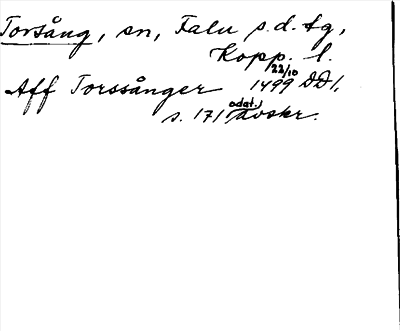 Torsång, sn, Falu s.d. tg,
Kopp. l.
Aff Torssånger 22/10 1499 DD1,
s. 171 odat. avskr.